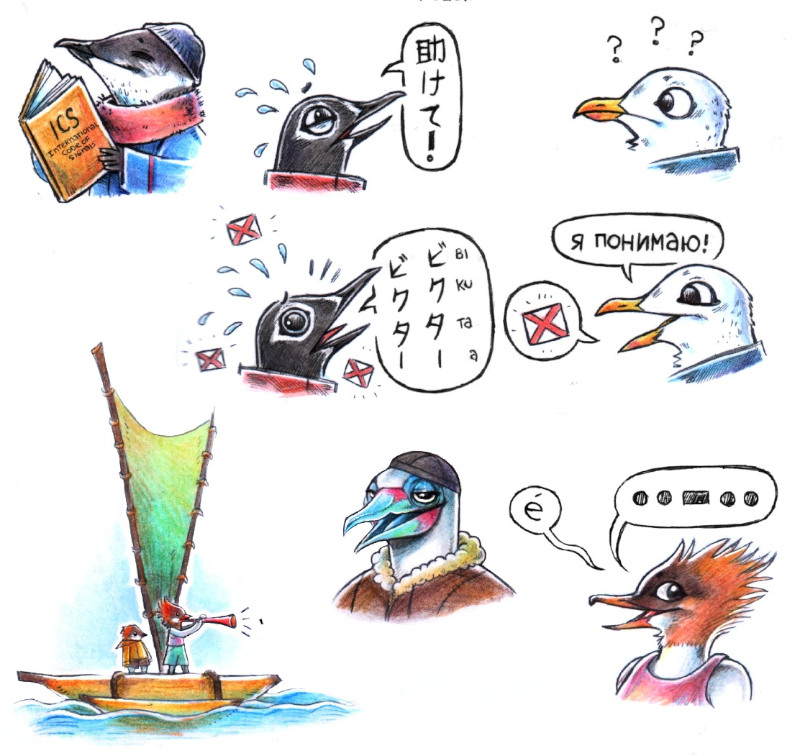 ICS
INTERNATIONAL
CODE OF
SIGNALS
助けて!
? ? ?
ビクター
ビクター
BI
KU
TA
a
я понимаю!
é